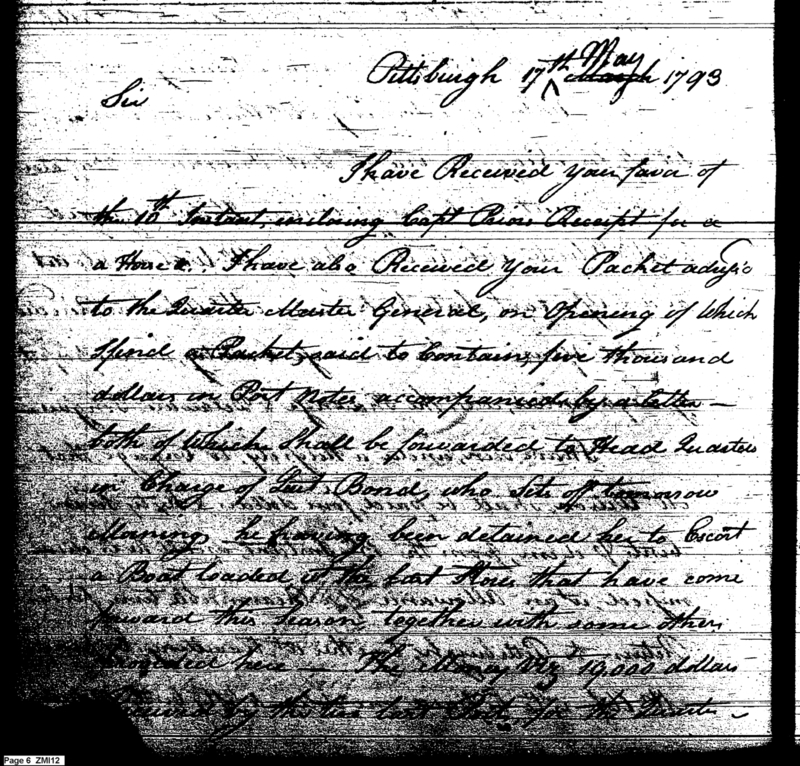 Pittsburgh 17th May March 1793
Sir
I have Received your favor of
the 10th Instant, inclosing Capt Priors Receipt for a
a Horse &c. I have also Received your Packet
to the Quarter Master General, on Opening of Which
I find a Packet, said to Contain, five thousand
dollars in Post Notes, accompanied by a letter —
both of Which shall be forwarded to Head Quarters
in Charge of Lieut. Bond, who Sets off tomorrow
Morning, he having been detained here to Escort
a Boat loaded with the last Stores that have come
forward this season together with some others
provided here — The Money Viz 19,000 dollars
Received by the two last for the Quarter
Page 6 ZMI12